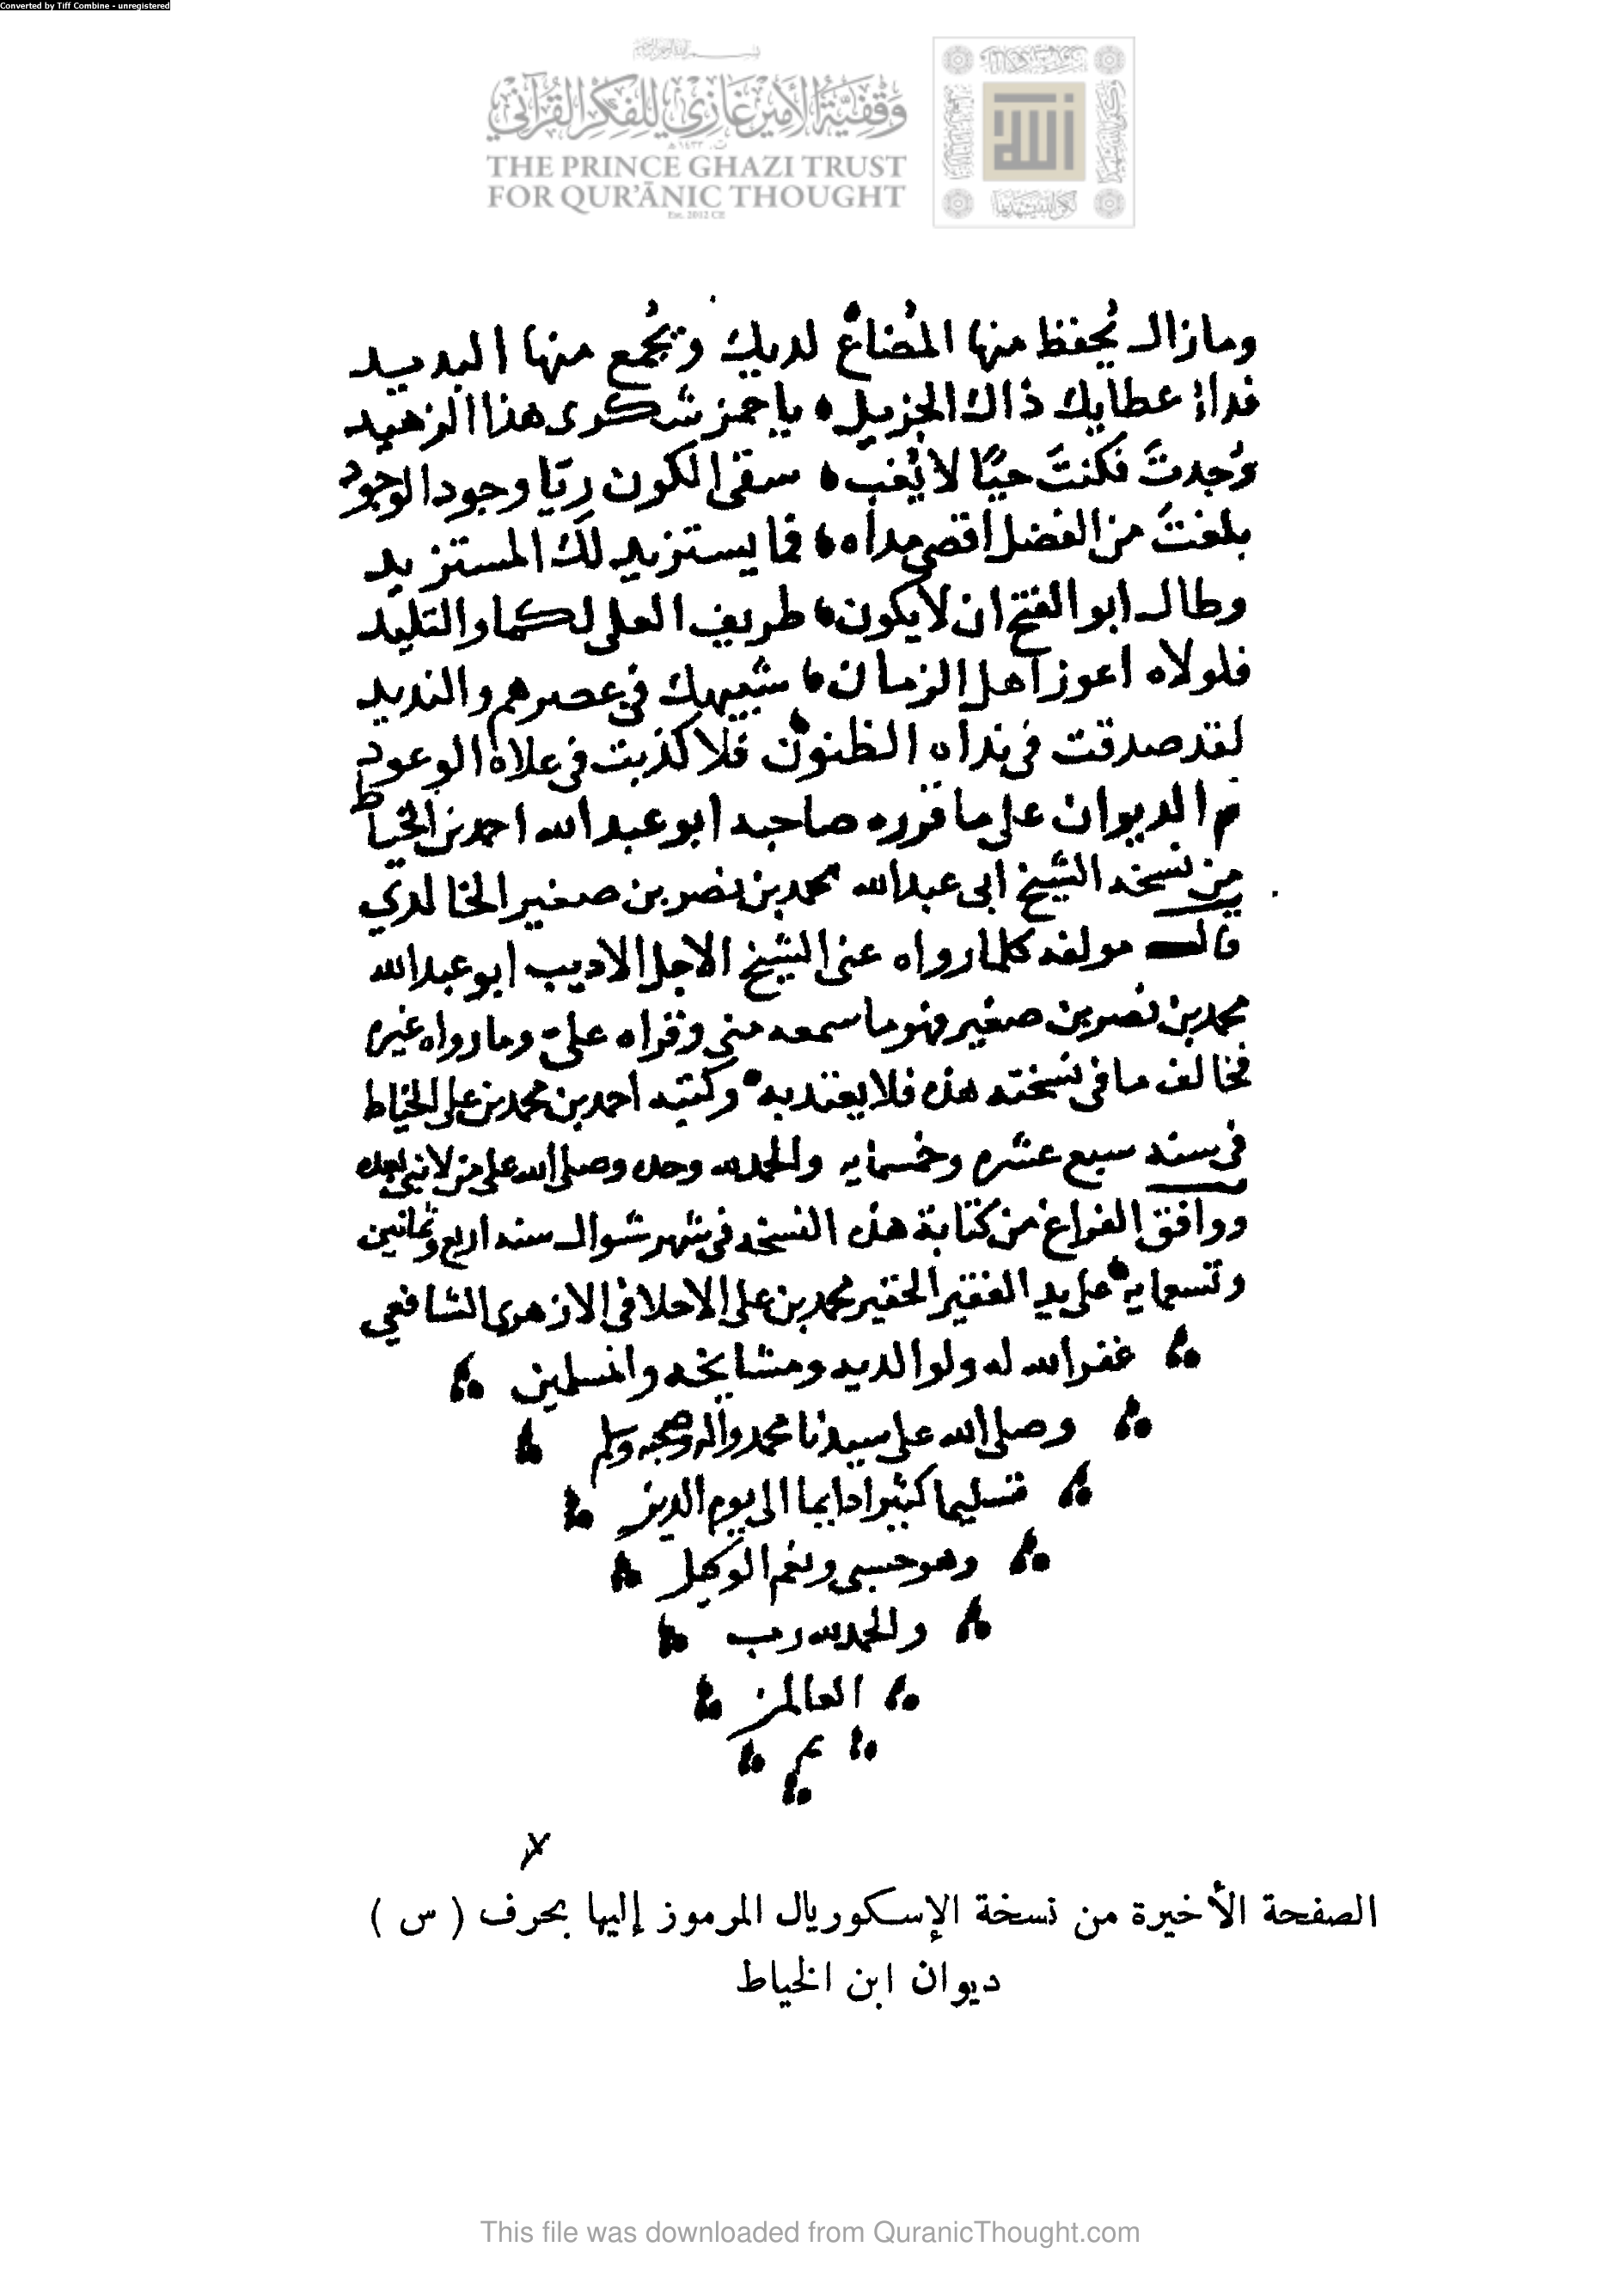 Converted by Tiff Combine - unregistered
وقفية الأمير غازي للفكر القرآني
THE PRINCE GHAZI TRUST
FOR QUR'ĀNIC THOUGHT
Est. 2012 CE
الله
ومازال يُحفظ منها المُضاعُ لديك ويُجمع منها البديد
فداءً عطاياك ذاك الجزيل، ياحمز شكرى هذا الزهيد
وُجدتَ فكنتَ حيًا لا يُغب، سقى الكون ريّا وجود الوجود
بلغتَ من الفضل اقصى مداه، فما يستزيد لك المستزيد
وطال ابو الفتح ان لا يكون، طريف العلى لكما والتليد
فلولاه اعوز اهل الزمان، شبيهك في عصرهم والنديد
لقد صدقت في نداه الظنون، فلا كذبت في علاه الوعود
تم الديوان على ما قرره صاحبه ابو عبد الله احمد بن الخياط
من نسخه الشيخ ابى عبد الله محمد بن نصر بن صغير الخالدي
قال مولفه كلما رواه عنى الشيخ الاجل الاديب ابو عبد الله
محمد بن نصر بن صغير فهو ما سمعه منى وقراه علي وما رواه غيره
فخالف ما فى نسخته هذه فلا يعتد به وكتبه احمد بن محمد بن على الخياط
فى سنه سبع عشره وخمسمايه والحمد لله وحده وصلى الله على من لا نبى بعده
ووافق الفراغ من كتابة هذه النسخه فى شهر شوال سنه اربع وثمانين
وتسعمايه على يد الفقير الحقير محمد بن على الازهرى الشافعي
غفر الله له ولوالديه ومشايخه والمسلمين
وصلى الله على سيدنا محمد واله وصحبه وسلم
تسليما كثيرا دايما الى يوم الدين
وهو حسبى ونعم الوكيل
والحمد لله رب
العالمين
تم
الصفحة الأخيرة من نسخة الإسكوريال المرموز إليها بحرف ( س )
ديوان ابن الخياط
This file was downloaded from QuranicThought.com